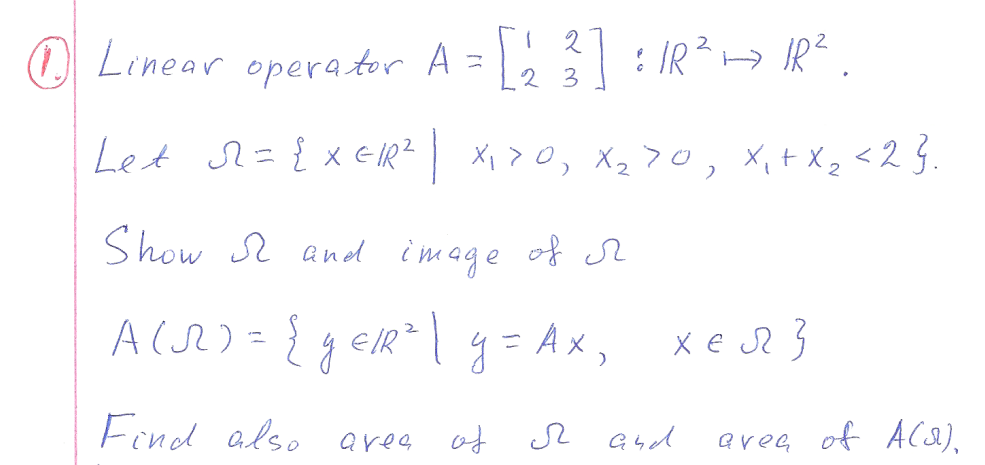 1. Linear operator A = [1 2; 2 3] : ℝ² ↦ ℝ².
Let Ω = { x ∈ ℝ² | x₁ > 0, x₂ > 0, x₁ + x₂ < 2 }.
Show Ω and image of Ω
A(Ω) = { y ∈ ℝ² | y = Ax, x ∈ Ω }
Find also area of Ω and area of A(Ω).